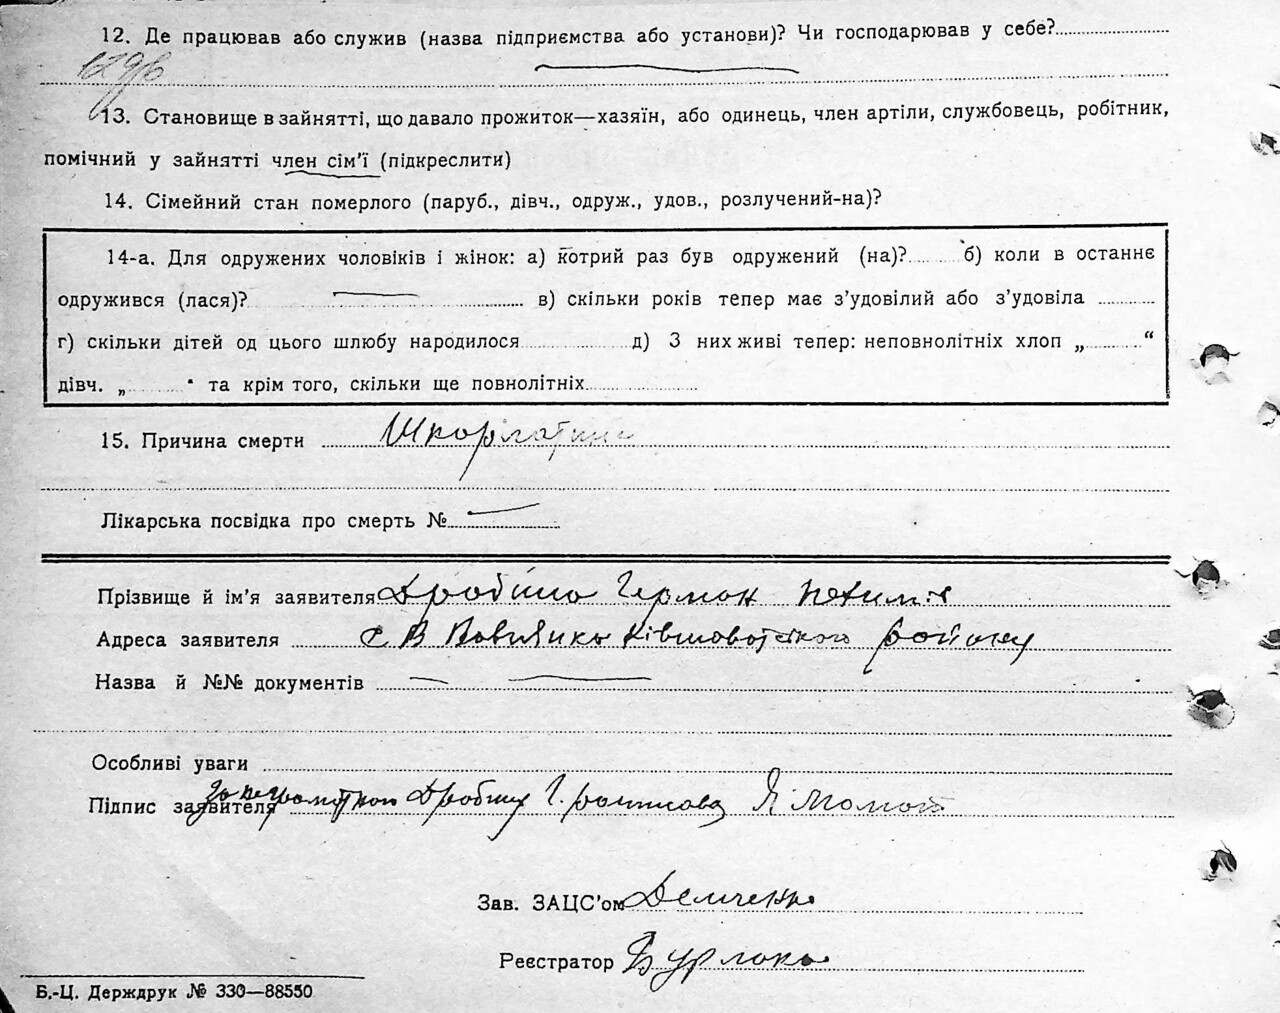 12. Де працював або служив (назва підприємства або установи)? Чи господарював у себе?
13. Становище в зайнятті, що давало прожиток—хазяїн, або одинець, член артіли, службовець, робітник,
помічний у зайнятті член сім'ї (підкреслити)
14. Сімейний стан померлого (паруб., дівч., одруж., удов., розлучений-на)?
14-а. Для одружених чоловіків і жінок: а) котрий раз був одружений (на)? б) коли в останнє
одружився (лася)? в) скільки років тепер має з'удовілий або з'удовіла
г) скільки дітей од цього шлюбу народилося д) З них живі тепер: неповнолітніх хлоп „ “
дівч. „ “ та крім того, скільки ще повнолітніх
15. Причина смерти Шкорлатина
Лікарська посвідка про смерть №
Прізвище й ім'я заявителя Дробіна Герман
Адреса заявителя с. В Вовнянка Ківшоватського району
Назва й №№ документів
Особливі уваги
Підпис заявителя За неграмотного Дробину Г. росписова
Зав. ЗАЦС'ом Демченко
Реєстратор Бурлака
Б.-Ц. Держдрук № 330—88550